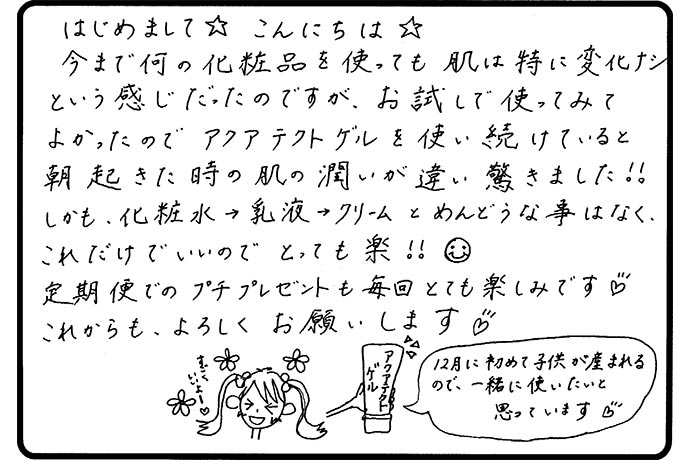 はじめまして☆ こんにちは☆
今まで何の化粧品を使っても肌は特に変化ナシ
という感じだったのですが、お試しで使ってみて
よかったので アクアテクトゲルを使い続けていると
朝起きた時の肌の潤いが違い驚きました!!
しかも、化粧水→乳液→クリームとめんどうな事はなく、
これだけでいいので とっても楽!!
定期便でのプチプレゼントも毎回とても楽しみです♡
これからも、よろしくお願いします♡
すごく
いいよー♡
アクアテクト
ゲル
12月に初めて子供が産まれる
ので、一緒に使いたいと
思っています♡